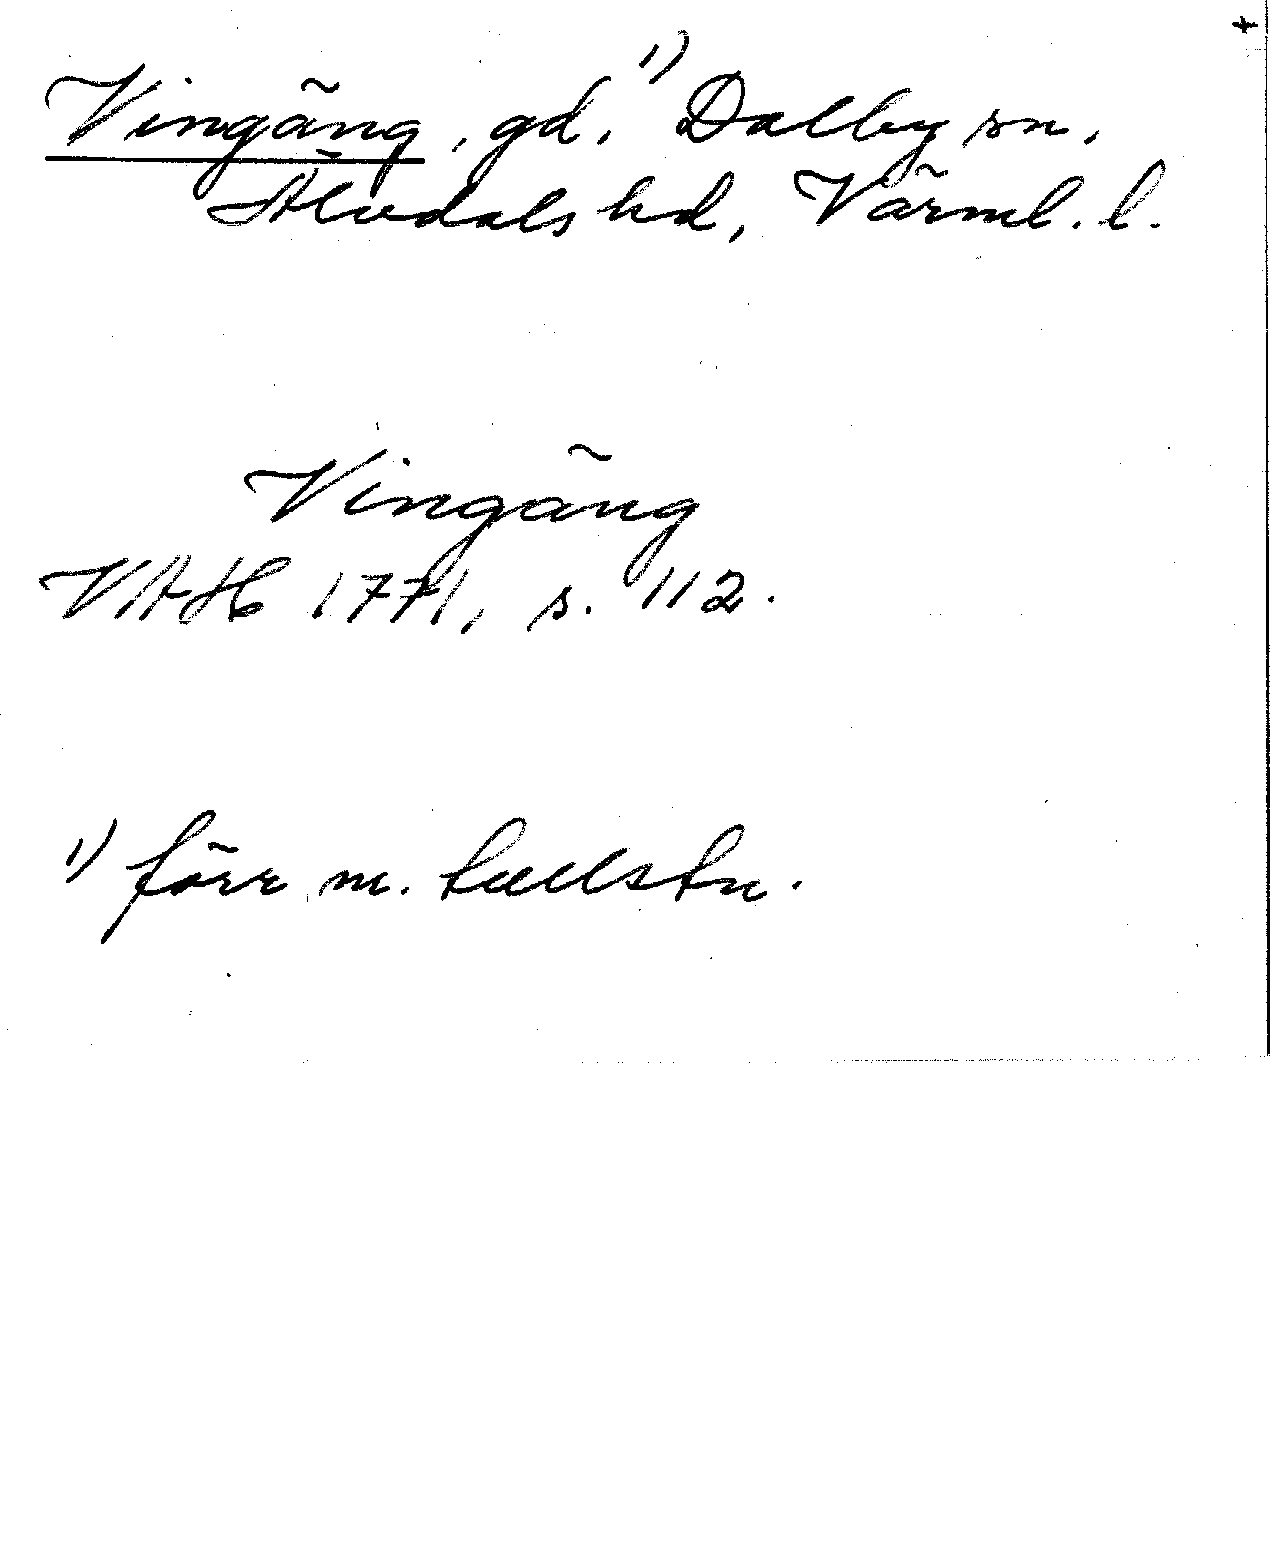 Vingäng, gd.¹⁾ Dalby sn,
Älvdals hd, Värml. l.
Vingäng
VAH 1771, s. 112.
¹⁾ förr m. tullstn.